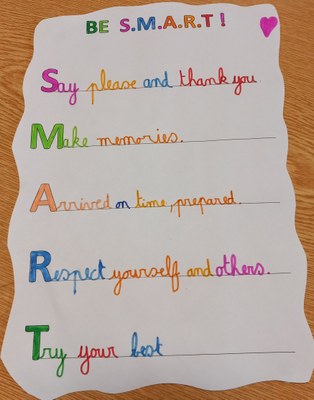 BE S.M.A.R.T !
Say please and thank you
Make memories.
Arrived on time, prepared.
Respect yourself and others.
Try your best